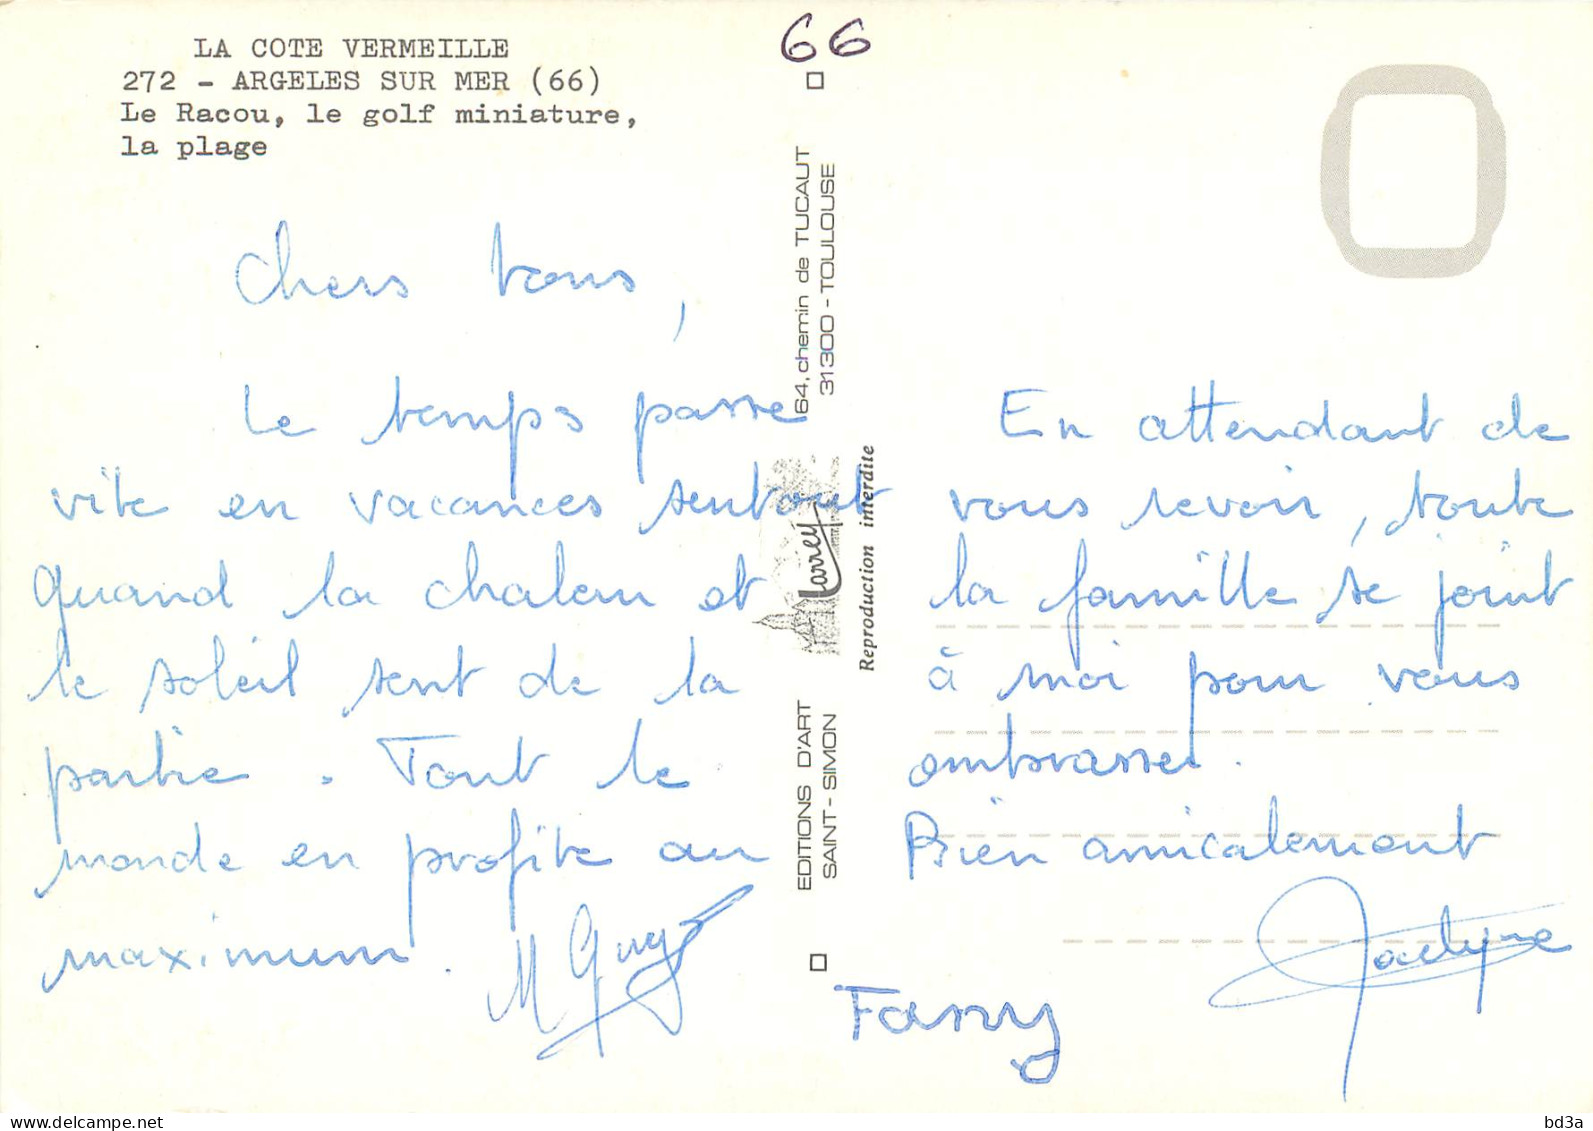 66
LA COTE VERMEILLE
272 - ARGELES SUR MER (66)
Le Racou, le golf miniature,
la plage
Chers tous,
Le temps passe
vite en vacances surtout
quand la chaleur et
le soleil sont de la
partie. Tout le
monde en profite au
maximum.
M Guy
64, chemin de TUCAUT
31300 - TOULOUSE
Larrey
Reproduction interdite
EDITIONS D'ART
SAINT-SIMON
En attendant de
vous revoir, toute
la famille se joint
à moi pour vous
embrasser.
Bien amicalement
Jocelyne
Fanny
delcampe.net
bd3a